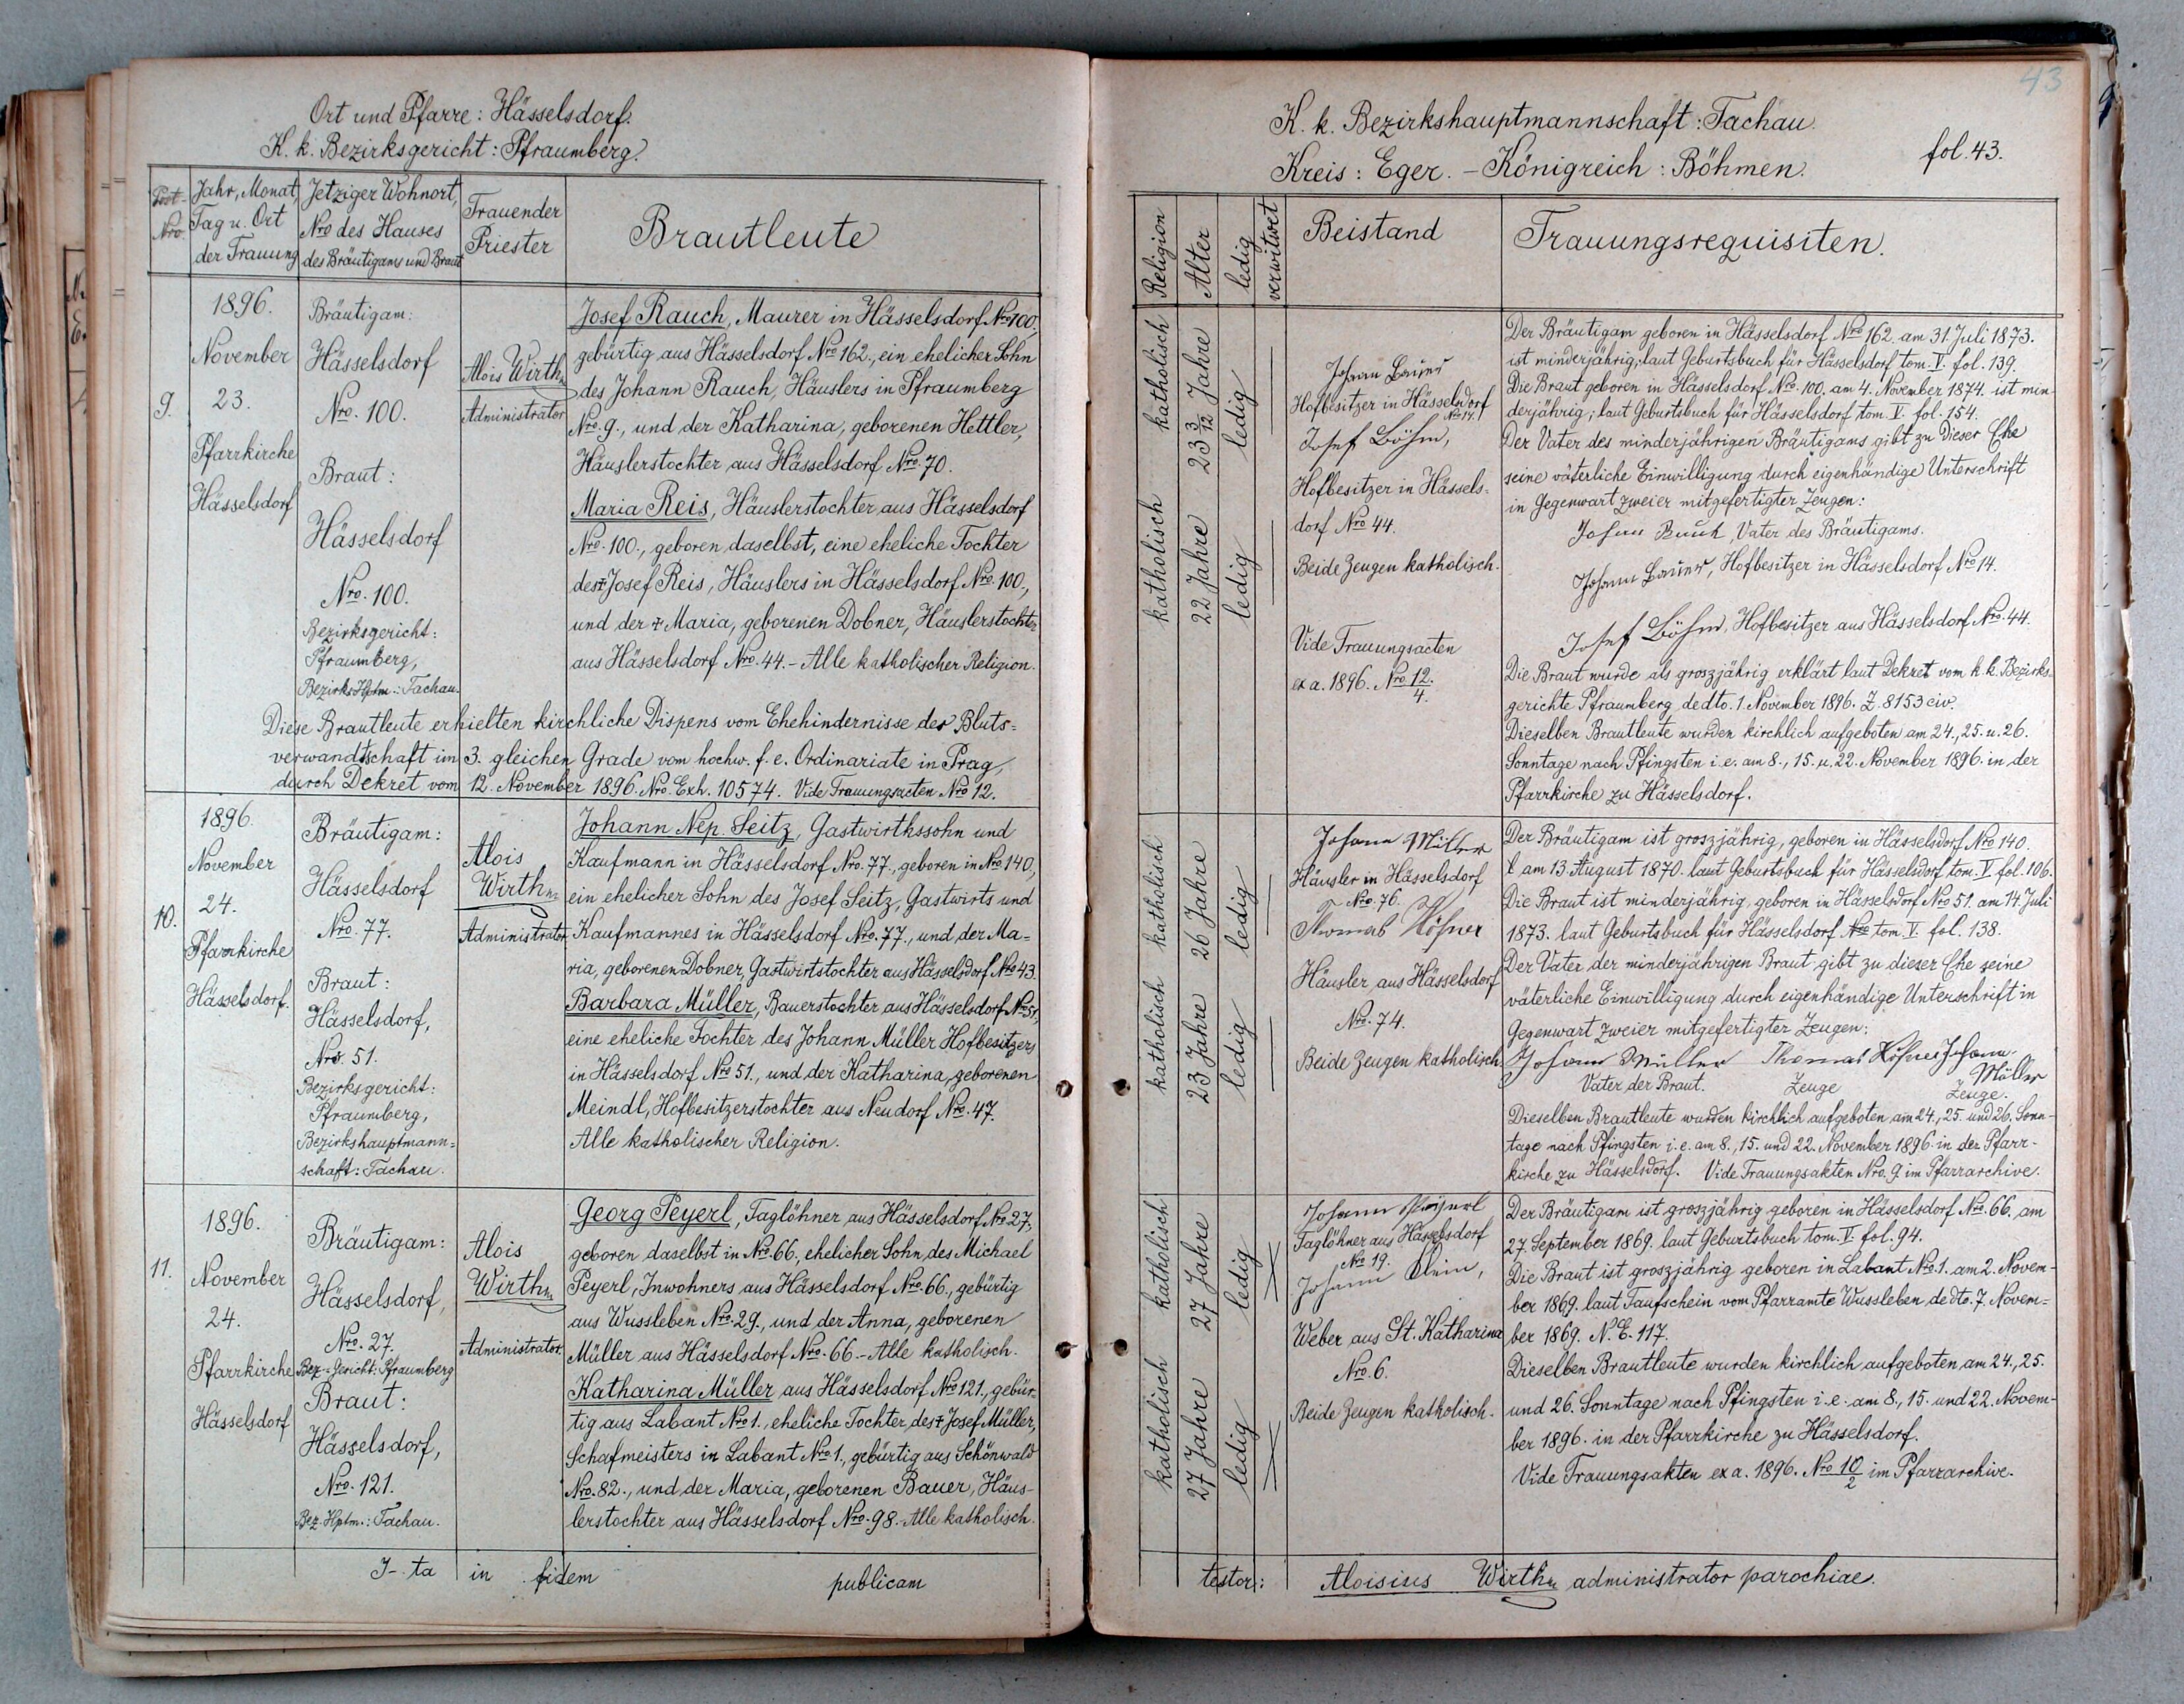 Ort und Pfarre: Hässelsdorf.
K. k. Bezirksgericht: Pfraumberg.
Post-
Nro.
Jahr, Monat,
Tag u. Ort
der Trauung
Jetziger Wohnort,
Nro des Hauses
des Bräutigams und Braut
Trauender
Priester
Brautleute
9.
1896.
November
23.
Pfarrkirche
Hässelsdorf
Bräutigam:
Hässelsdorf
Nro. 100.
Braut:
Hässelsdorf
Nro. 100.
Bezirksgericht:
Pfraumberg,
Bezirks Hptm.: Tachau.
Alois Wirth
Administrator
Josef Rauch, Maurer in Hässelsdorf Nro 100,
gebürtig aus Hässelsdorf Nro 162., ein ehelicher Sohn
des Johann Rauch, Häuslers in Pfraumberg
Nro. 9., und der Katharina, geborenen Hettler,
Häuslerstochter aus Hässelsdorf Nro. 70.
Maria Reis, Häuslerstochter aus Hässelsdorf
Nro. 100., geboren daselbst, eine eheliche Tochter
des + Josef Reis, Häuslers in Hässelsdorf Nro. 100.,
und der + Maria, geborenen Dobner, Häuslerstochter
aus Hässelsdorf Nro. 44. - Alle katholischer Religion.
Diese Brautleute erhielten kirchliche Dispens vom Ehehindernisse der Bluts=
verwandtschaft im 3. gleichen Grade vom hochw. f. e. Ordinariate in Prag,
durch Dekret vom 12. November 1896. Nro. Exh. 10574. Vide Trauungsacten Nro 12.
10.
1896.
November
24.
Pfarrkirche
Hässelsdorf.
Bräutigam:
Hässelsdorf
Nro. 77.
Braut:
Hässelsdorf,
Nro. 51.
Bezirksgericht:
Pfraumberg,
Bezirkshauptmann=
schaft: Tachau.
Alois
Wirth
Administrator
Johann Nep. Seitz, Gastwirthssohn und
Kaufmann in Hässelsdorf Nro. 77., geboren in Nro 140,
ein ehelicher Sohn des Josef Seitz, Gastwirts und
Kaufmannes in Hässelsdorf Nro. 77., und der Ma=
ria, geborenen Dobner, Gastwirtstochter aus Hässelsdorf Nro 43.
Barbara Müller, Bauerstochter aus Hässelsdorf Nro 51,
eine eheliche Tochter des Johann Müller Hofbesitzers
in Hässelsdorf Nro 51., und der Katharina, geborenen
Meindl, Hofbesitzerstochter aus Neudorf Nro. 47.
Alle katholischer Religion.
11.
1896.
November
24.
Pfarrkirche
Hässelsdorf
Bräutigam:
Hässelsdorf,
Nro. 27.
Bez-Gericht: Pfraumberg
Braut:
Hässelsdorf,
Nro. 121.
Bez. Hptm.: Tachau.
Alois
Wirth
Administrator
Georg Peyerl, Taglöhner aus Hässelsdorf Nro 27.,
geboren daselbst in Nro. 66., ehelicher Sohn des Michael
Peyerl, Inwohners aus Hässelsdorf Nro. 66., gebürtig
aus Wussleben Nro. 29., und der Anna, geborenen
Müller aus Hässelsdorf Nro. 66. - Alle katholisch.
Katharina Müller aus Hässelsdorf Nro 121., gebür-
tig aus Labant Nro 1., eheliche Tochter des + Josef Müller,
Schafmeisters in Labant Nro 1., gebürtig aus Schönwald
Nro. 82., und der Maria, geborenen Bauer, Häus-
lerstochter aus Hässelsdorf Nro. 98. - Alle katholisch.
I-ta in fidem publicam
43
K. k. Bezirkshauptmannschaft: Tachau.
Kreis: Eger. - Königreich: Böhmen.
fol. 43.
Religion
Alter
ledig
verwitwet
Beistand
Trauungsrequisiten.
katholisch
23 3/12 Jahre
ledig
katholisch
22 Jahre
ledig
Johann Bauer
Hofbesitzer in Hässelsdorf
Nro 14.
Josef Böhm,
Hofbesitzer in Hässels=
dorf Nro 44.
Beide Zeugen katholisch.
Vide Trauungsacten
ex a. 1896. Nro 12./4.
Der Bräutigam geboren in Hässelsdorf Nro 162. am 31. Juli 1873.
ist minderjährig, laut Geburtsbuch für Hässelsdorf tom. V. fol. 139.
Die Braut geboren in Hässelsdorf Nro. 100. am 4. November 1874. ist min-
derjährig; laut Geburtsbuch für Hässelsdorf tom. V. fol. 154.
Der Vater des minderjährigen Bräutigams gibt zu dieser Ehe
seine väterliche Einwilligung durch eigenhändige Unterschrift
in Gegenwart zweier mitgefertigter Zeugen:
Johann Rauch, Vater des Bräutigams.
Johann Bauer, Hofbesitzer in Hässelsdorf Nro 14.
Josef Böhm, Hofbesitzer aus Hässelsdorf Nro. 44.
Die Braut wurde als groszjährig erklärt laut Dekret vom k. k. Bezirks-
gerichte Pfraumberg de dto. 1. November 1896. Z. 8153 civ.
Dieselben Brautleute wurden kirchlich aufgeboten am 24., 25. u. 26.
Sonntage nach Pfingsten i. e. am 8., 15. u. 22. November 1896. in der
Pfarrkirche zu Hässelsdorf.
katholisch
26 Jahre
ledig
katholisch
23 Jahre
ledig
Johann Müller
Häusler in Hässelsdorf
Nro. 76.
Thomas Höfner
Häusler aus Hässelsdorf
Nro. 74.
Beide Zeugen katholisch.
Der Bräutigam ist groszjährig, geboren in Hässelsdorf Nro 140.
am 13. August 1870. laut Geburtsbuch für Hässelsdorf tom. V. fol. 106.
Die Braut ist minderjährig, geboren in Hässelsdorf Nro 51. am 14. Juli
1873. laut Geburtsbuch für Hässelsdorf Nro tom. V. fol. 138.
Der Vater der minderjährigen Braut gibt zu dieser Ehe seine
väterliche Einwilligung durch eigenhändige Unterschrift in
Gegenwart zweier mitgefertigter Zeugen:
Johann Müller Thomas Höfner Johann
Müller
Vater der Braut. Zeuge Zeuge.
Dieselben Brautleute wurden kirchlich aufgeboten am 24., 25. und 26. Sonn-
tage nach Pfingsten i. e. am 8., 15. und 22. November 1896. in der Pfarr-
kirche zu Hässelsdorf. Vide Trauungsakten Nro. 9. im Pfarrarchive.
katholisch
27 Jahre
ledig
katholisch
27 Jahre
ledig
Johann
Taglöhner aus Hässelsdorf
Nro 19.
Johann Klein,
Weber aus St. Katharina
Nro. 6.
Beide Zeugen katholisch.
Der Bräutigam ist groszjährig geboren in Hässelsdorf Nro. 66. am
27. September 1869. laut Geburtsbuch tom. V. fol. 94.
Die Braut ist groszjährig geboren in Labant Nro. 1. am 2. Novem-
ber 1869. laut Taufschein vom Pfarramte Wussleben, de dto. 7. Novem=
ber 1869. N. E. 117.
Dieselben Brautleute wurden kirchlich aufgeboten am 24., 25.
und 26. Sonntage nach Pfingsten i. e. am 8., 15. und 22. Novem-
ber 1896. in der Pfarrkirche zu Hässelsdorf.
Vide Trauungsakten ex a. 1896. Nro 10/2 im Pfarrarchive.
testor: Aloisius Wirth administrator parochiae.